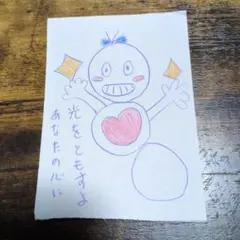 光をともすよ
あなたの心に